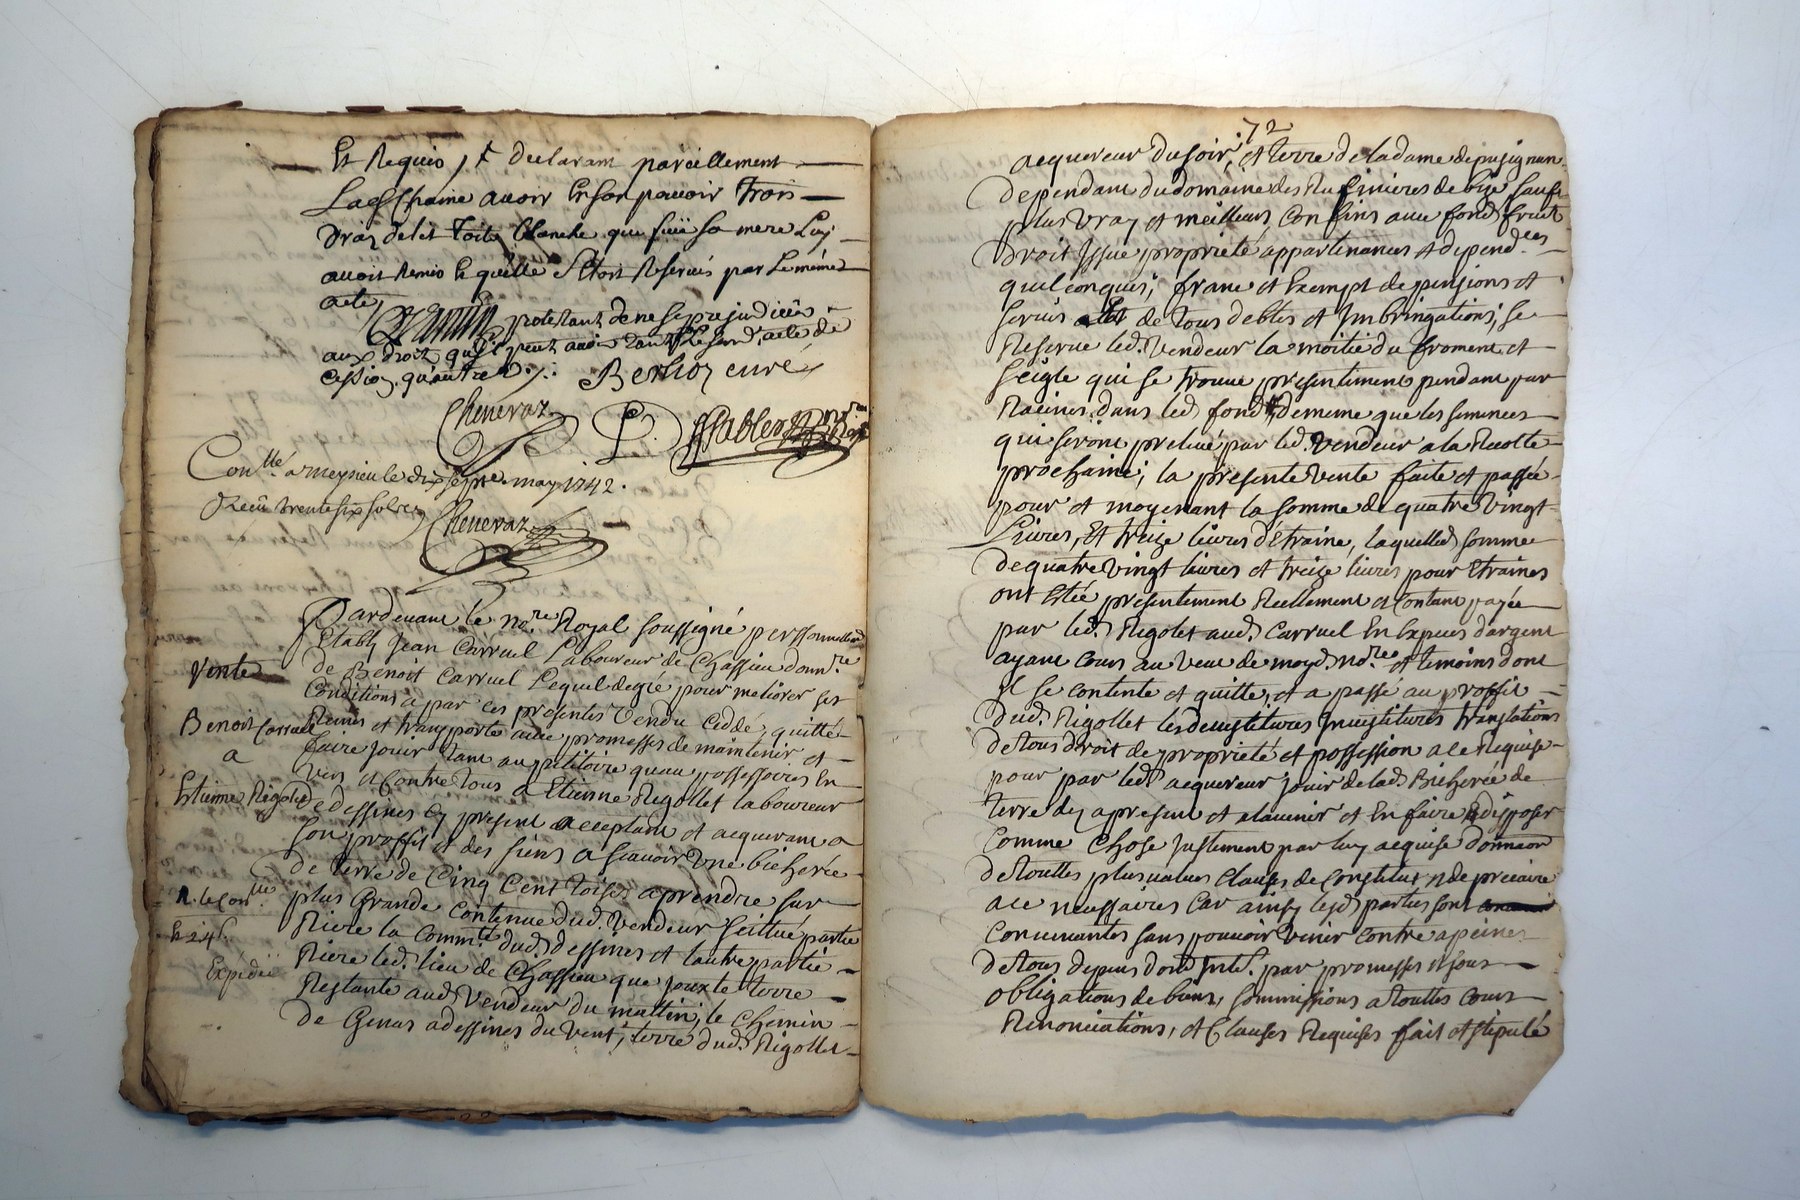 Et Requis, Et declarant pareillement
La d Chaine avoir En son pouvoir trois
draz delit toile blanche que feüe sa mere Luy
avoit Remis Et qu'elle S'etoit Reservés par Le meme
acte
protestant de ne se prejudicier
aux droit qu'il peut avoir tant acte de
cession, qu'autre.
Berlioz curé
Cheneraz
Con.tté a meysieu le dix sept.e may 1742.
Receu trente six sols
Cheneraz
Pardevant le no.re Royal soussigné personnellem
Etably Jean Carruel Laboureur de Chassieu donn.re
Vente
de Benoit Carruel Lequel de gré pour meliorer ses
Conditions a par ces presentes Vendu Ceddé, quitté
Benoit Carruel
Remis et transporté avec promesses de maintenir et
a
faire jouir tant au petitoire qu'au possessoires En
Vers et Contre tous a Etienne Rigollet laboureur
Etienne Rigolet
de dessines Cy present acceptant et acquerant a
son proffit et des siens a sçavoir Une bicherée
de terre de Cinq Cent Toises aprendre sur
R. le Con.tlle
plus Grande Contenue dud. Vendeur Scittué partie
E 24 s
Riere la Comm.té dud. dessines et lautre partie
Expedié
Riere led. lieu de Chassieu que jouxte terre
Restante aud. Vendeur du mattin, le Chemin
de Genas a dessines du Vent, terre dud. Rigollet
72
acquereur du soir, et terre de la dame de pusignan
dependant du domaine des Rufinieres de bize sauf
plus Vray et meilleurs Confins avec fond fruit
Droit Issue proprieté appartenances et depend.ces
quelconques, franc et Exempt de pensions et
servis et de tous debtes et Imbringations, se
Reserve led. Vendeur la moitié du froment et
seigle qui se trouve presentement pendant par
Racines dans led. fond de meme que les semences
qui seront prelevé par led. Vendeur a la Recolte
prochaine, la presente Vente faite et passée
pour et moyenant la somme de quatre vingt
Livres, Et treize livres d'étraine, laquelled. somme
de quatre vingt livres et treize livres pour Etraines
ont Estée presentement Reellement et Contant payée
par led. Rigolet aud. Carruel En Especes d'argent
ayant Cours au Veue de moyd. no.re et temoins dont
Il se contente et quitte, et a passé au proffit
dud. Rigollet les devestitures Investitures translations
de tous droit de proprieté et possession a ce Requise
pour par led. acquereur jouir de lad. Bicherée de
terre dez apresent et alavenir et En faire disposer
Comme Chose justement par luy acquise donnaon
de touttes plus values Clauses de Constitut et de precaire
a ce necessaires Car ainsy lesd. parties sont
Convenantes sans pouvoir Venir Contre apeines
de tous depens dom.s Int.s par promesses et sous
obligations de biens, Soummissions a touttes Cours
Renonciations, et Clauses Requises fait et stipulé